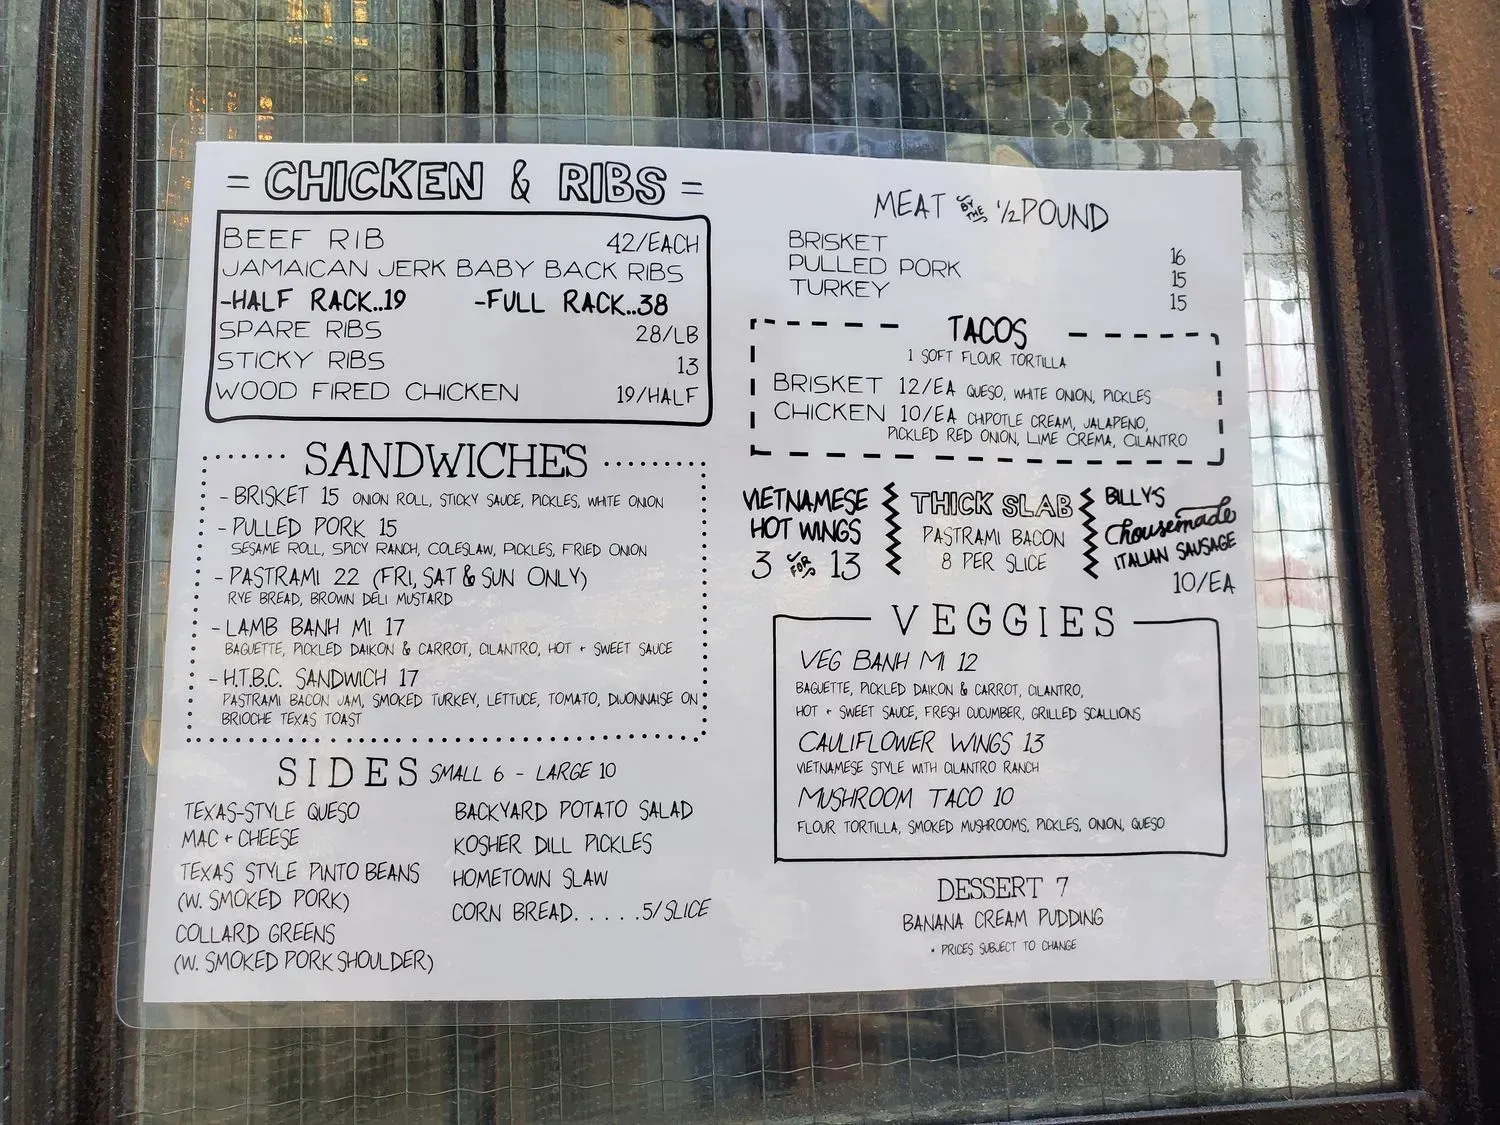 = CHICKEN & RIBS =
BEEF RIB 42/EACH
JAMAICAN JERK BABY BACK RIBS
-HALF RACK..19 -FULL RACK..38
SPARE RIBS 28/LB
STICKY RIBS 13
WOOD FIRED CHICKEN 19/HALF
SANDWICHES
- BRISKET 15 ONION ROLL, STICKY SAUCE, PICKLES, WHITE ONION
- PULLED PORK 15
SESAME ROLL, SPICY RANCH, COLESLAW, PICKLES, FRIED ONION
- PASTRAMI 22 (FRI, SAT & SUN ONLY)
RYE BREAD, BROWN DELI MUSTARD
- LAMB BANH MI 17
BAGUETTE, PICKLED DAIKON & CARROT, CILANTRO, HOT + SWEET SAUCE
- H.T.B.C. SANDWICH 17
PASTRAMI BACON JAM, SMOKED TURKEY, LETTUCE, TOMATO, DIJONNAISE ON
BRIOCHE TEXAS TOAST
SIDES SMALL 6 - LARGE 10
TEXAS-STYLE QUESO
MAC + CHEESE
TEXAS STYLE PINTO BEANS
(W. SMOKED PORK)
COLLARD GREENS
(W. SMOKED PORK SHOULDER)
BACKYARD POTATO SALAD
KOSHER DILL PICKLES
HOMETOWN SLAW
CORN BREAD. . . . .5/SLICE
MEAT BY THE 1/2 POUND
BRISKET 16
PULLED PORK 15
TURKEY 15
TACOS
1 SOFT FLOUR TORTILLA
BRISKET 12/EA QUESO, WHITE ONION, PICKLES
CHICKEN 10/EA CHIPOTLE CREAM, JALAPENO,
PICKLED RED ONION, LIME CREMA, CILANTRO
VIETNAMESE
HOT WINGS
3 FOR 13
THICK SLAB
PASTRAMI BACON
8 PER SLICE
BILLY'S
housemade
ITALIAN SAUSAGE
10/EA
VEGGIES
VEG BANH MI 12
BAGUETTE, PICKLED DAIKON & CARROT, CILANTRO,
HOT + SWEET SAUCE, FRESH CUCUMBER, GRILLED SCALLIONS
CAULIFLOWER WINGS 13
VIETNAMESE STYLE WITH CILANTRO RANCH
MUSHROOM TACO 10
FLOUR TORTILLA, SMOKED MUSHROOMS, PICKLES, ONION, QUESO
DESSERT 7
BANANA CREAM PUDDING
* PRICES SUBJECT TO CHANGE